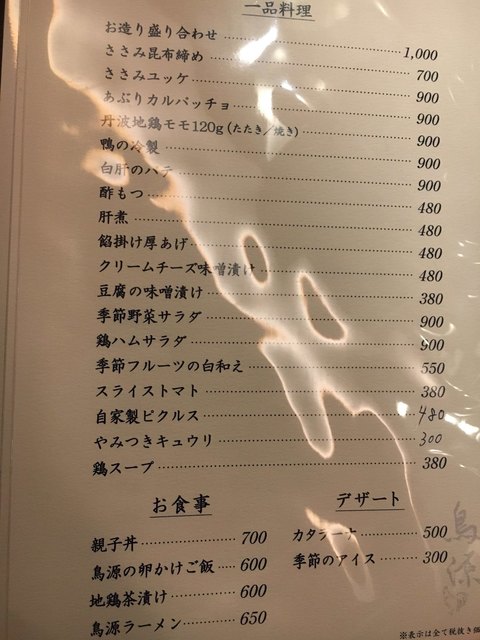 一品料理
お造り盛り合わせ 1,000
ささみ昆布締め 700
ささみユッケ 900
あぶりカルパッチョ 900
丹波地鶏モモ120g(たたき/焼き) 900
鴨の冷製 900
白肝のパテ 900
酢もつ 480
肝煮 480
餡掛け厚あげ 480
クリームチーズ味噌漬け 480
豆腐の味噌漬け 380
季節野菜サラダ 900
鶏ハムサラダ 900
季節フルーツの白和え 550
スライストマト 380
自家製ピクルス 480
やみつきキュウリ 300
鶏スープ 380
お食事
親子丼 700
鳥源の卵かけご飯 600
地鶏茶漬け 600
鳥源ラーメン 650
デザート
カタラーナ 500
季節のアイス 300
鳥源
※表示は全て税抜き価